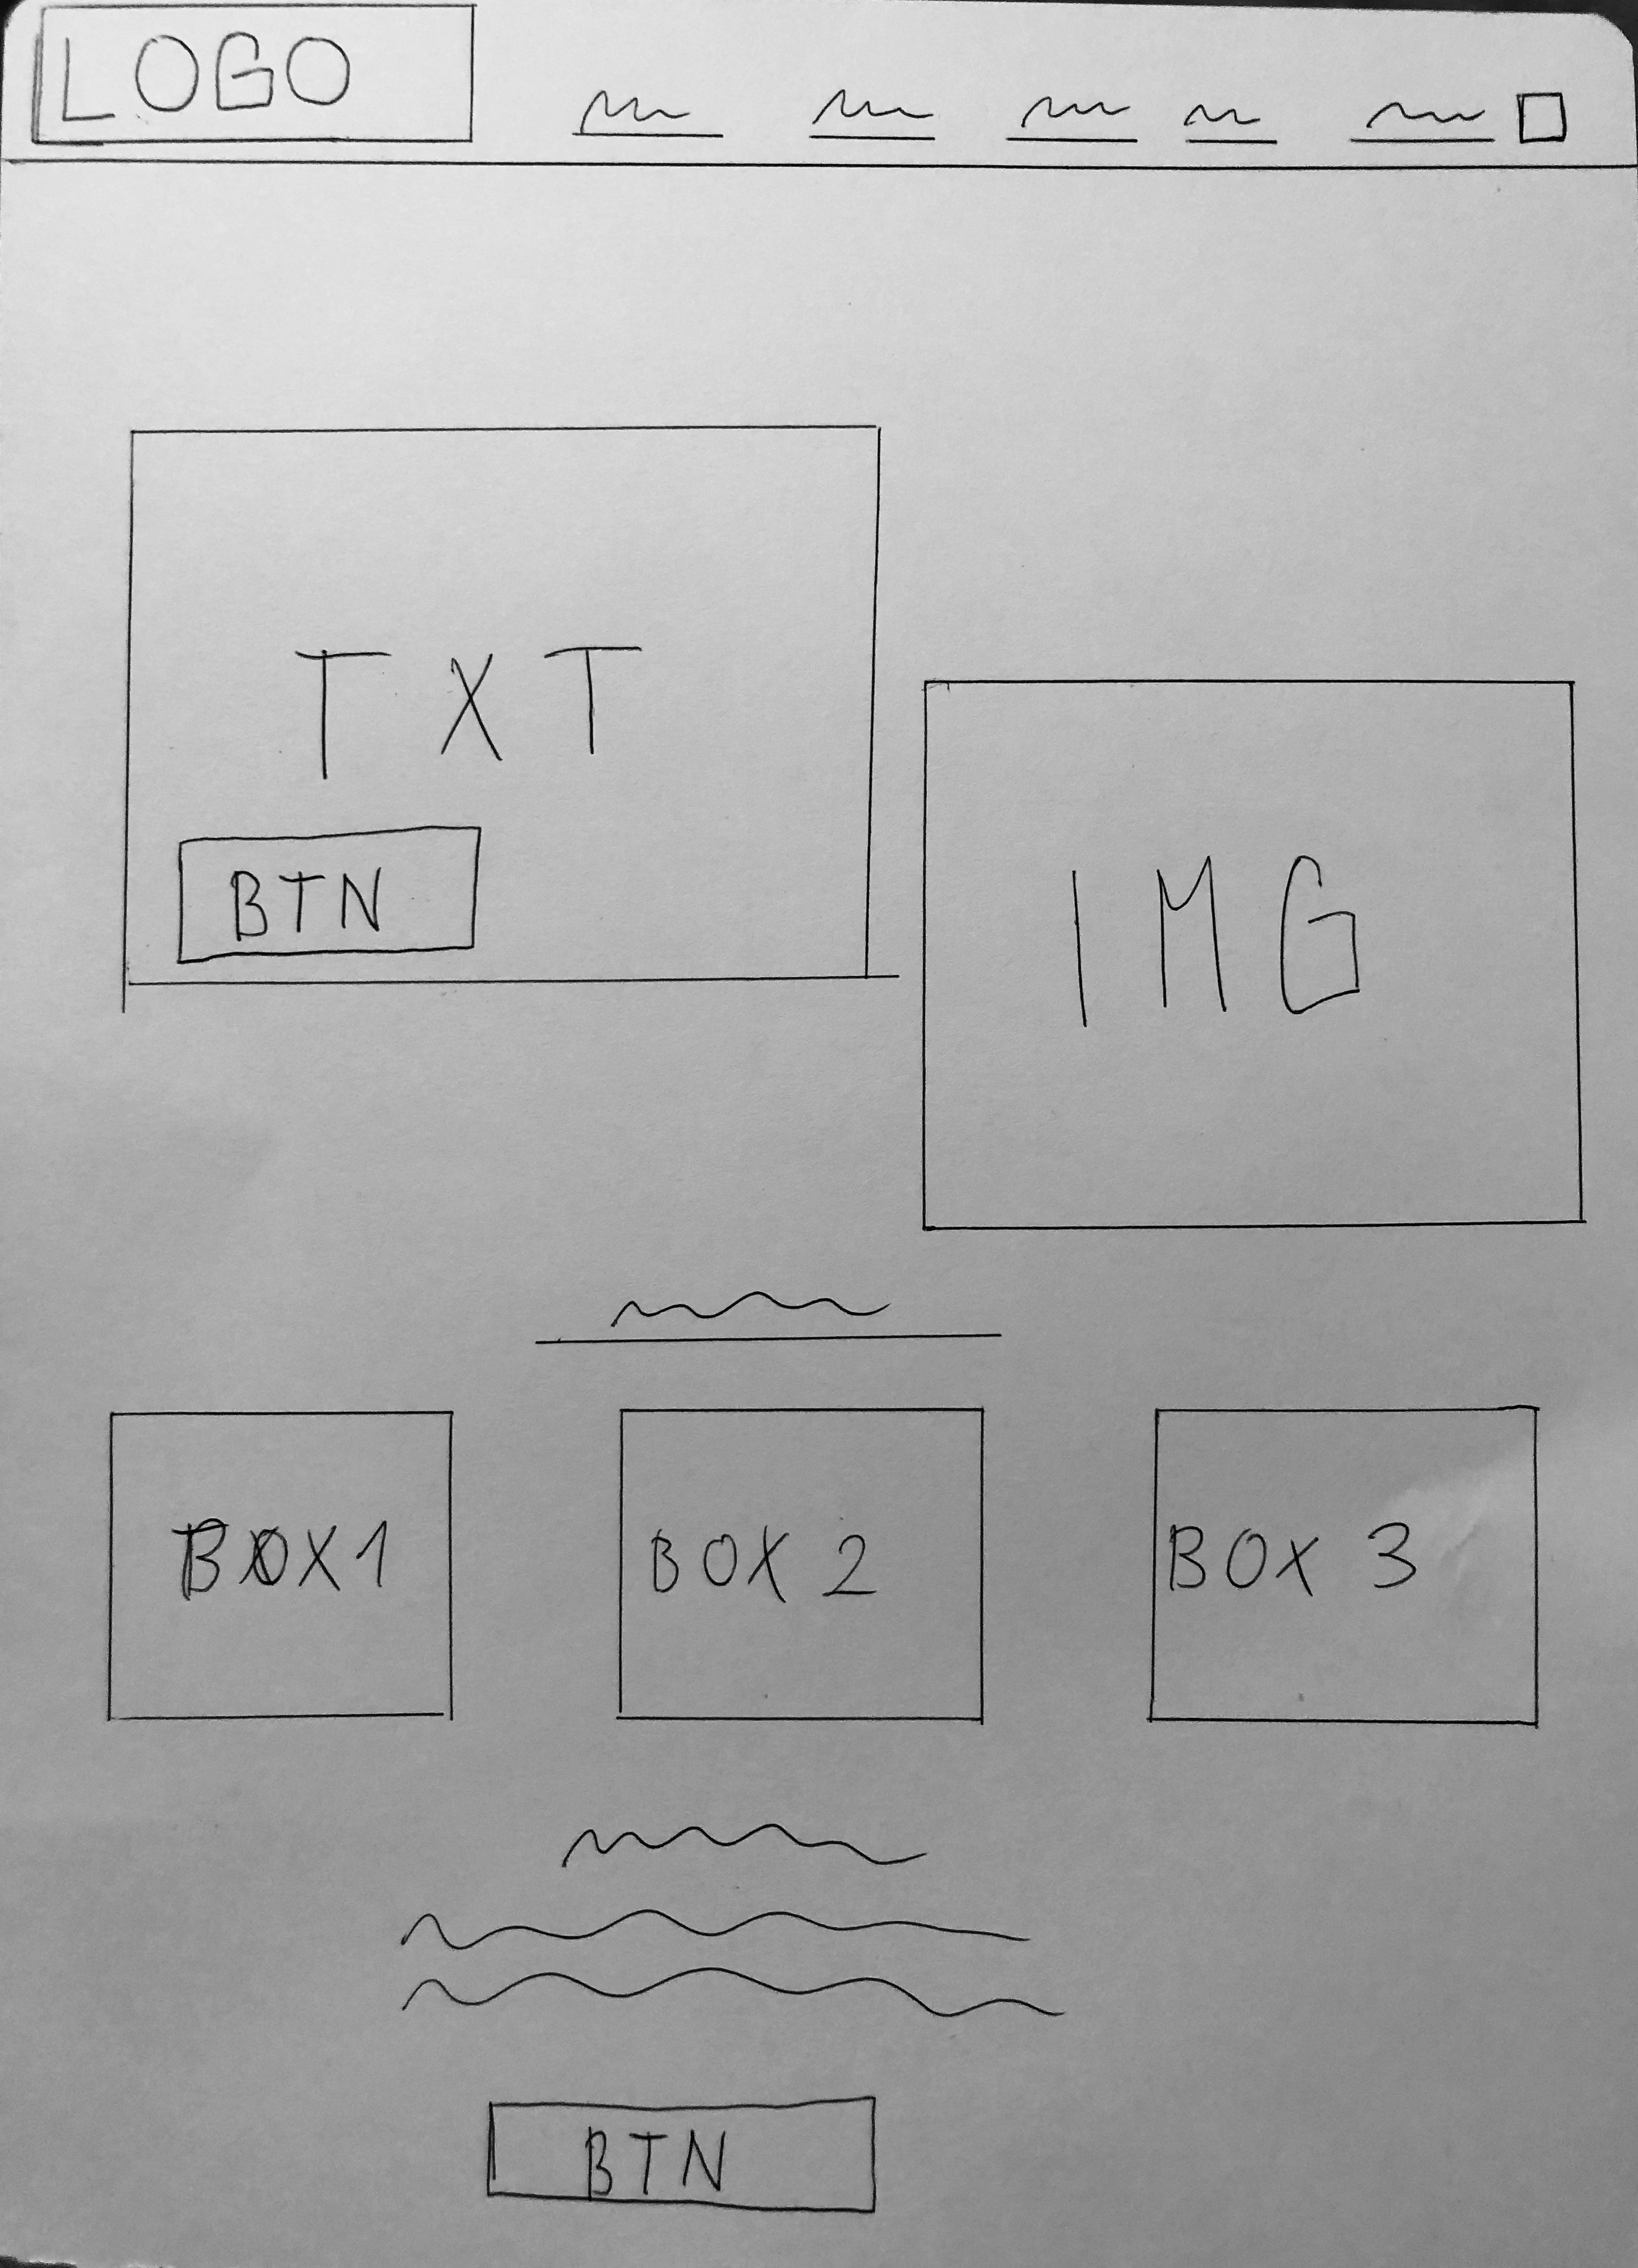 LOGO
TXT
BTN
IMG
BOX1
BOX 2
BOX 3
BTN